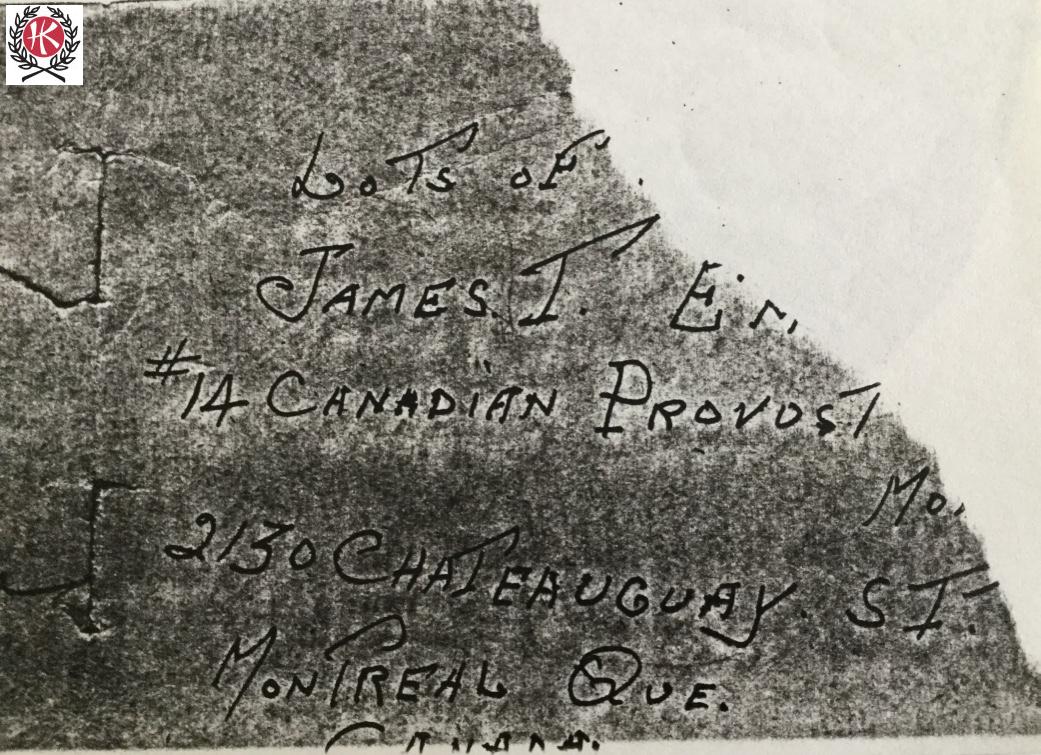 HK
LoTs oF
JAMES. T.
#14 CANADIAN PROVOST
2130 CHATEAUGUAY. ST.
MONTREAL QUE.
CANADA.